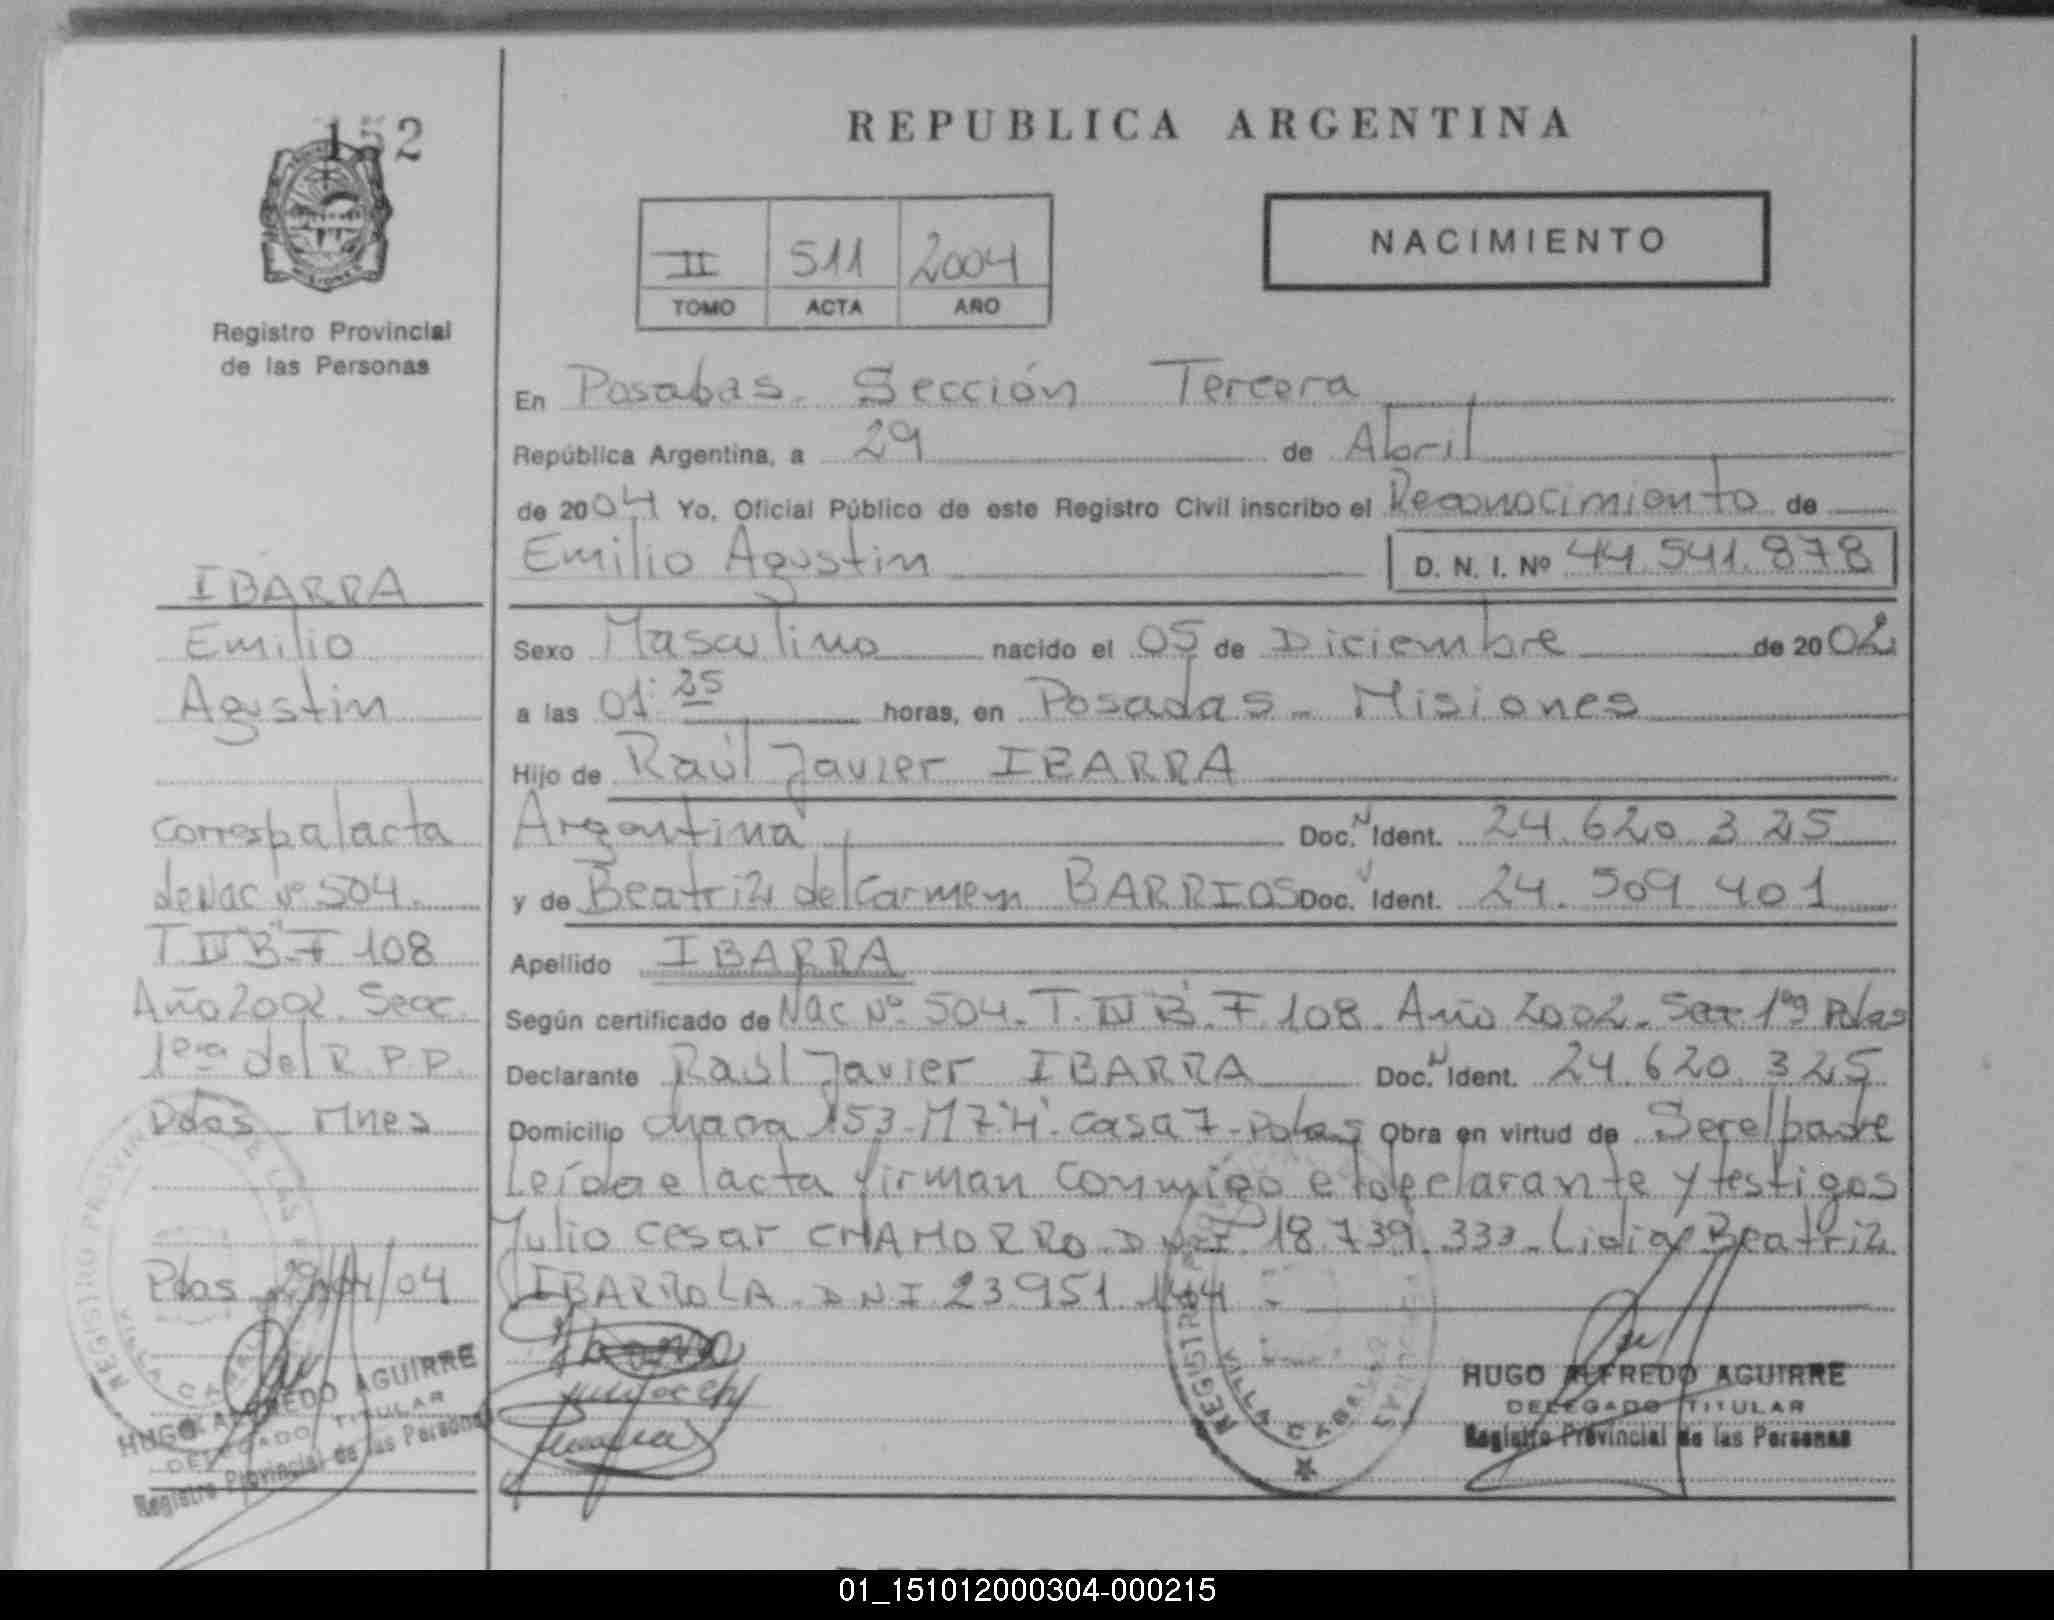 152
REPUBLICA ARGENTINA
II 511 2004
TOMO ACTA AÑO
NACIMIENTO
Registro Provincial
de las Personas
En Posadas. Sección Tercera
República Argentina, a 29 de Abril
de 2004 Yo, Oficial Público de este Registro Civil inscribo el Reconocimiento de
Emilio Agustin D. N. I. Nº 44.541.878
Sexo Masculino nacido el 05 de Diciembre de 2002
a las 01:25 horas, en Posadas - Misiones
Hijo de Raúl Javier IBARRA
Argentina Doc. N Ident. 24.620.325
y de Beatriz del Carmen BARRIOS Doc. Ident. 24.509.401
Apellido IBARRA
Según certificado de Nac Nº 504. T. III "B". F 108. Año 2002. Sec 1ra Pdas
Declarante Raúl Javier IBARRA Doc. N Ident. 24.620.325
Domicilio chacra 153-M7"H"-casa 7-Pdas Obra en virtud de Ser el padre
Leída el acta firman conmigo el declarante y testigos
Julio Cesar CHAMORRO D N I 18.739.333 - Lidia Beatriz
IBARROLA D N I 23951.144 -
IBARRA
Emilio
Agustin
Corresp al acta
de Nac Nº 504.
T. III "B" F 108
Año 2002. Secc.
1era del R. P. P.
Pdas Mnes
Pdas 29/04/04
HUGO ALFREDO AGUIRRE
DELEGADO TITULAR
Registro Provincial de las Personas
REGISTRO PROVINCIAL DE LAS
VILLA CABELLO
HUGO ALFREDO AGUIRRE
DELEGADO TITULAR
Registro Provincial de las Personas
REGISTRO
VILLA CABELLO
01_151012000304-000215